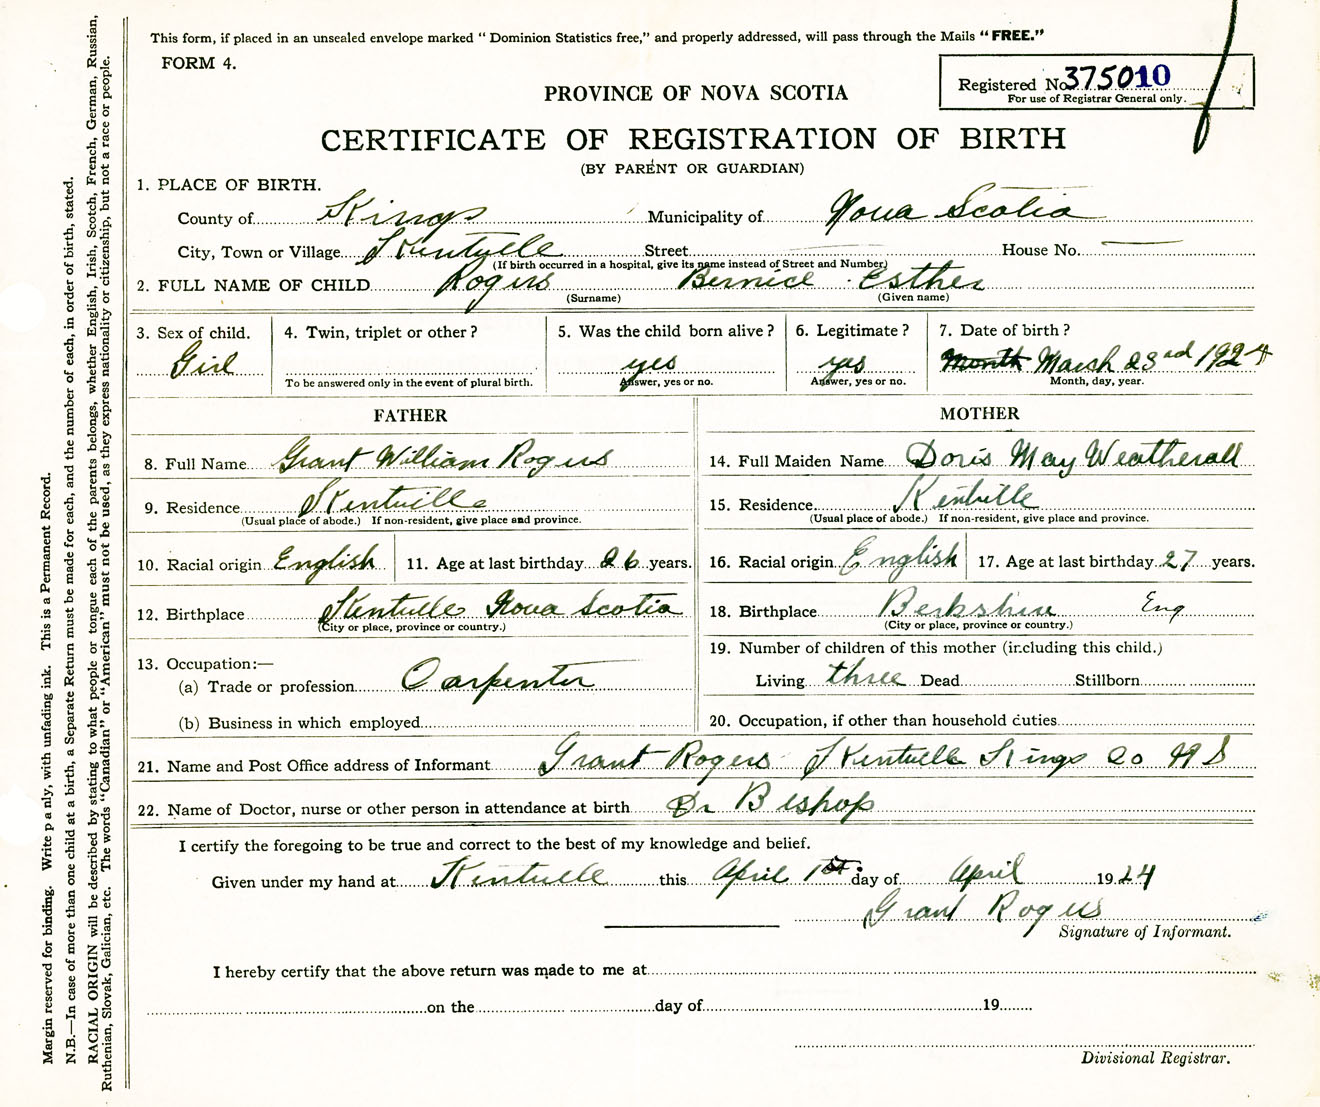 This form, if placed in an unsealed envelope marked " Dominion Statistics free," and properly addressed, will pass through the Mails "FREE."
FORM 4.
Registered No. 375010
For use of Registrar General only.
PROVINCE OF NOVA SCOTIA
CERTIFICATE OF REGISTRATION OF BIRTH
(BY PARENT OR GUARDIAN)
1. PLACE OF BIRTH.
County of Kings Municipality of Nova Scotia
City, Town or Village Kentville Street House No.
(If birth occurred in a hospital, give its name instead of Street and Number)
2. FULL NAME OF CHILD Rogers Bernice Esther
(Surname) (Given name)
3. Sex of child. 4. Twin, triplet or other? 5. Was the child born alive? 6. Legitimate? 7. Date of birth?
Girl yes yes Month March 23rd 1924
To be answered only in the event of plural birth. Answer, yes or no. Answer, yes or no. Month, day, year.
FATHER MOTHER
8. Full Name Grant William Rogers 14. Full Maiden Name Doris May Weatherall
9. Residence Kentville 15. Residence Kentville
(Usual place of abode.) If non-resident, give place and province. (Usual place of abode.) If non-resident, give place and province.
10. Racial origin English 11. Age at last birthday 26 years. 16. Racial origin English 17. Age at last birthday 27 years.
12. Birthplace Kentville Nova Scotia 18. Birthplace Berkshire Eng
(City or place, province or country.) (City or place, province or country.)
13. Occupation:— 19. Number of children of this mother (including this child.)
(a) Trade or profession Carpenter Living three Dead Stillborn
(b) Business in which employed 20. Occupation, if other than household duties
21. Name and Post Office address of Informant Grant Rogers Kentville Kings Co N S
22. Name of Doctor, nurse or other person in attendance at birth Dr Bishop
I certify the foregoing to be true and correct to the best of my knowledge and belief.
Given under my hand at Kentville this April 1st day of April 1924
Grant Rogers
Signature of Informant.
I hereby certify that the above return was made to me at
on the day of 19
Divisional Registrar.
Margin reserved for binding. Write p a nly, with unfading ink. This is a Permanent Record.
N.B.—In case of more than one child at a birth, a Separate Return must be made for each, and the number of each, in order of birth, stated.
RACIAL ORIGIN will be described by stating to what people or tongue each of the parents belongs, whether English, Irish, Scotch, French, German, Russian,
Ruthenian, Slovak, Galician, etc. The words "Canadian" or "American" must not be used, as they express nationality or citizenship, but not a race or people.